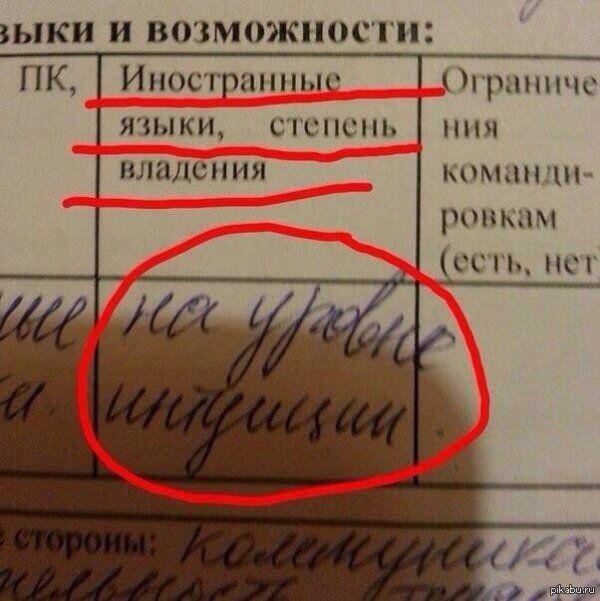 зыки и возможности:
ПК,
Иностранные
языки, степень
владения
Ограниче
ния
команди-
ровкам
(есть, нет
на уровне
интуиции.
стороны:
pikabu.ru